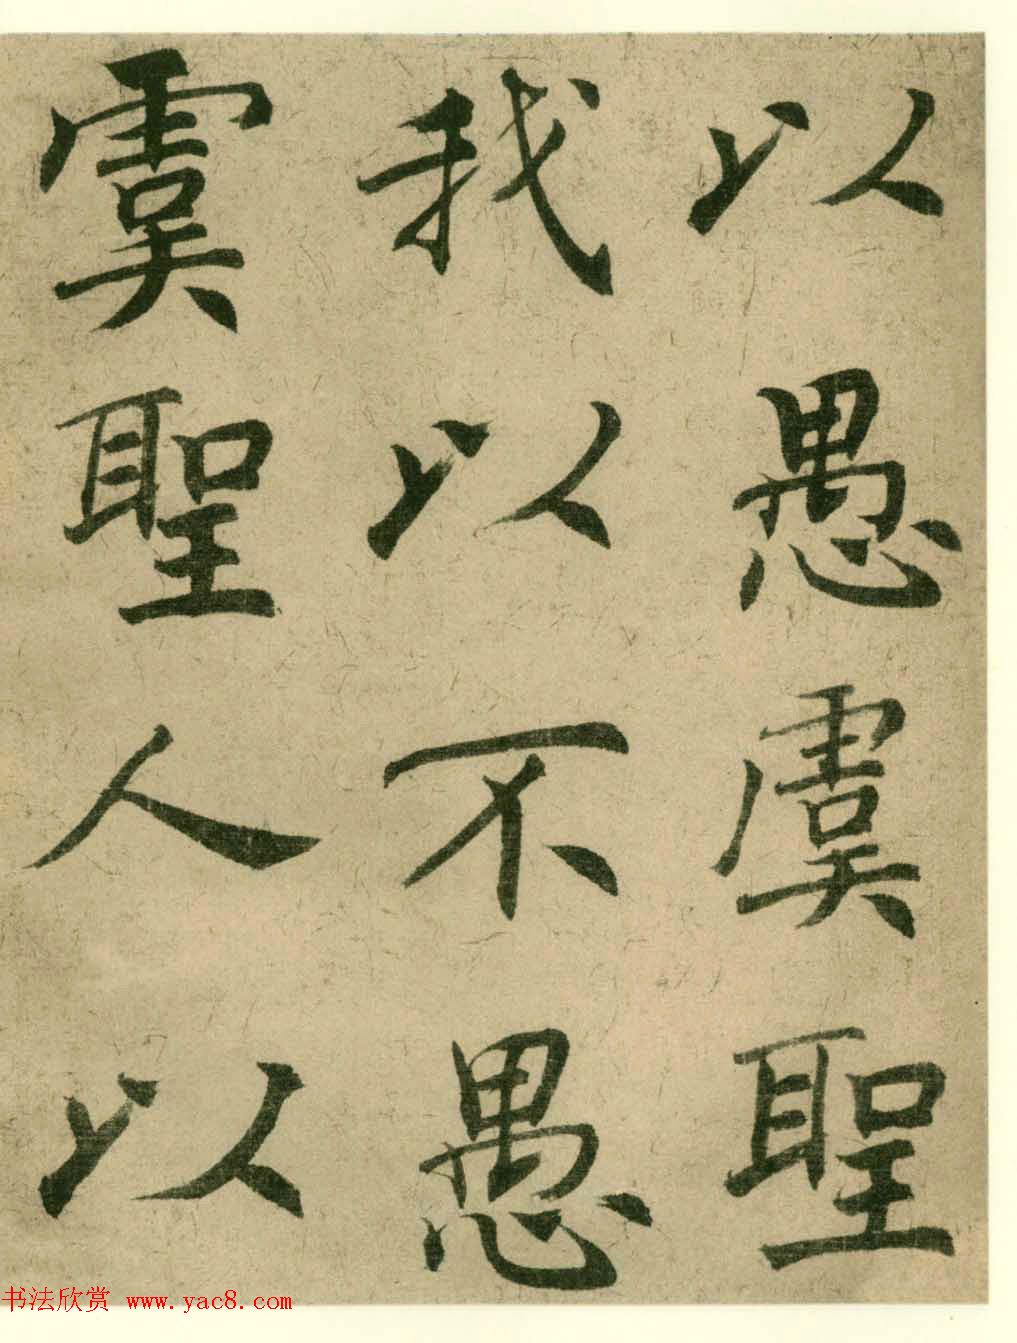 以愚虞聖
我以不愚
虞聖人以
书法欣赏 www.yac8.com